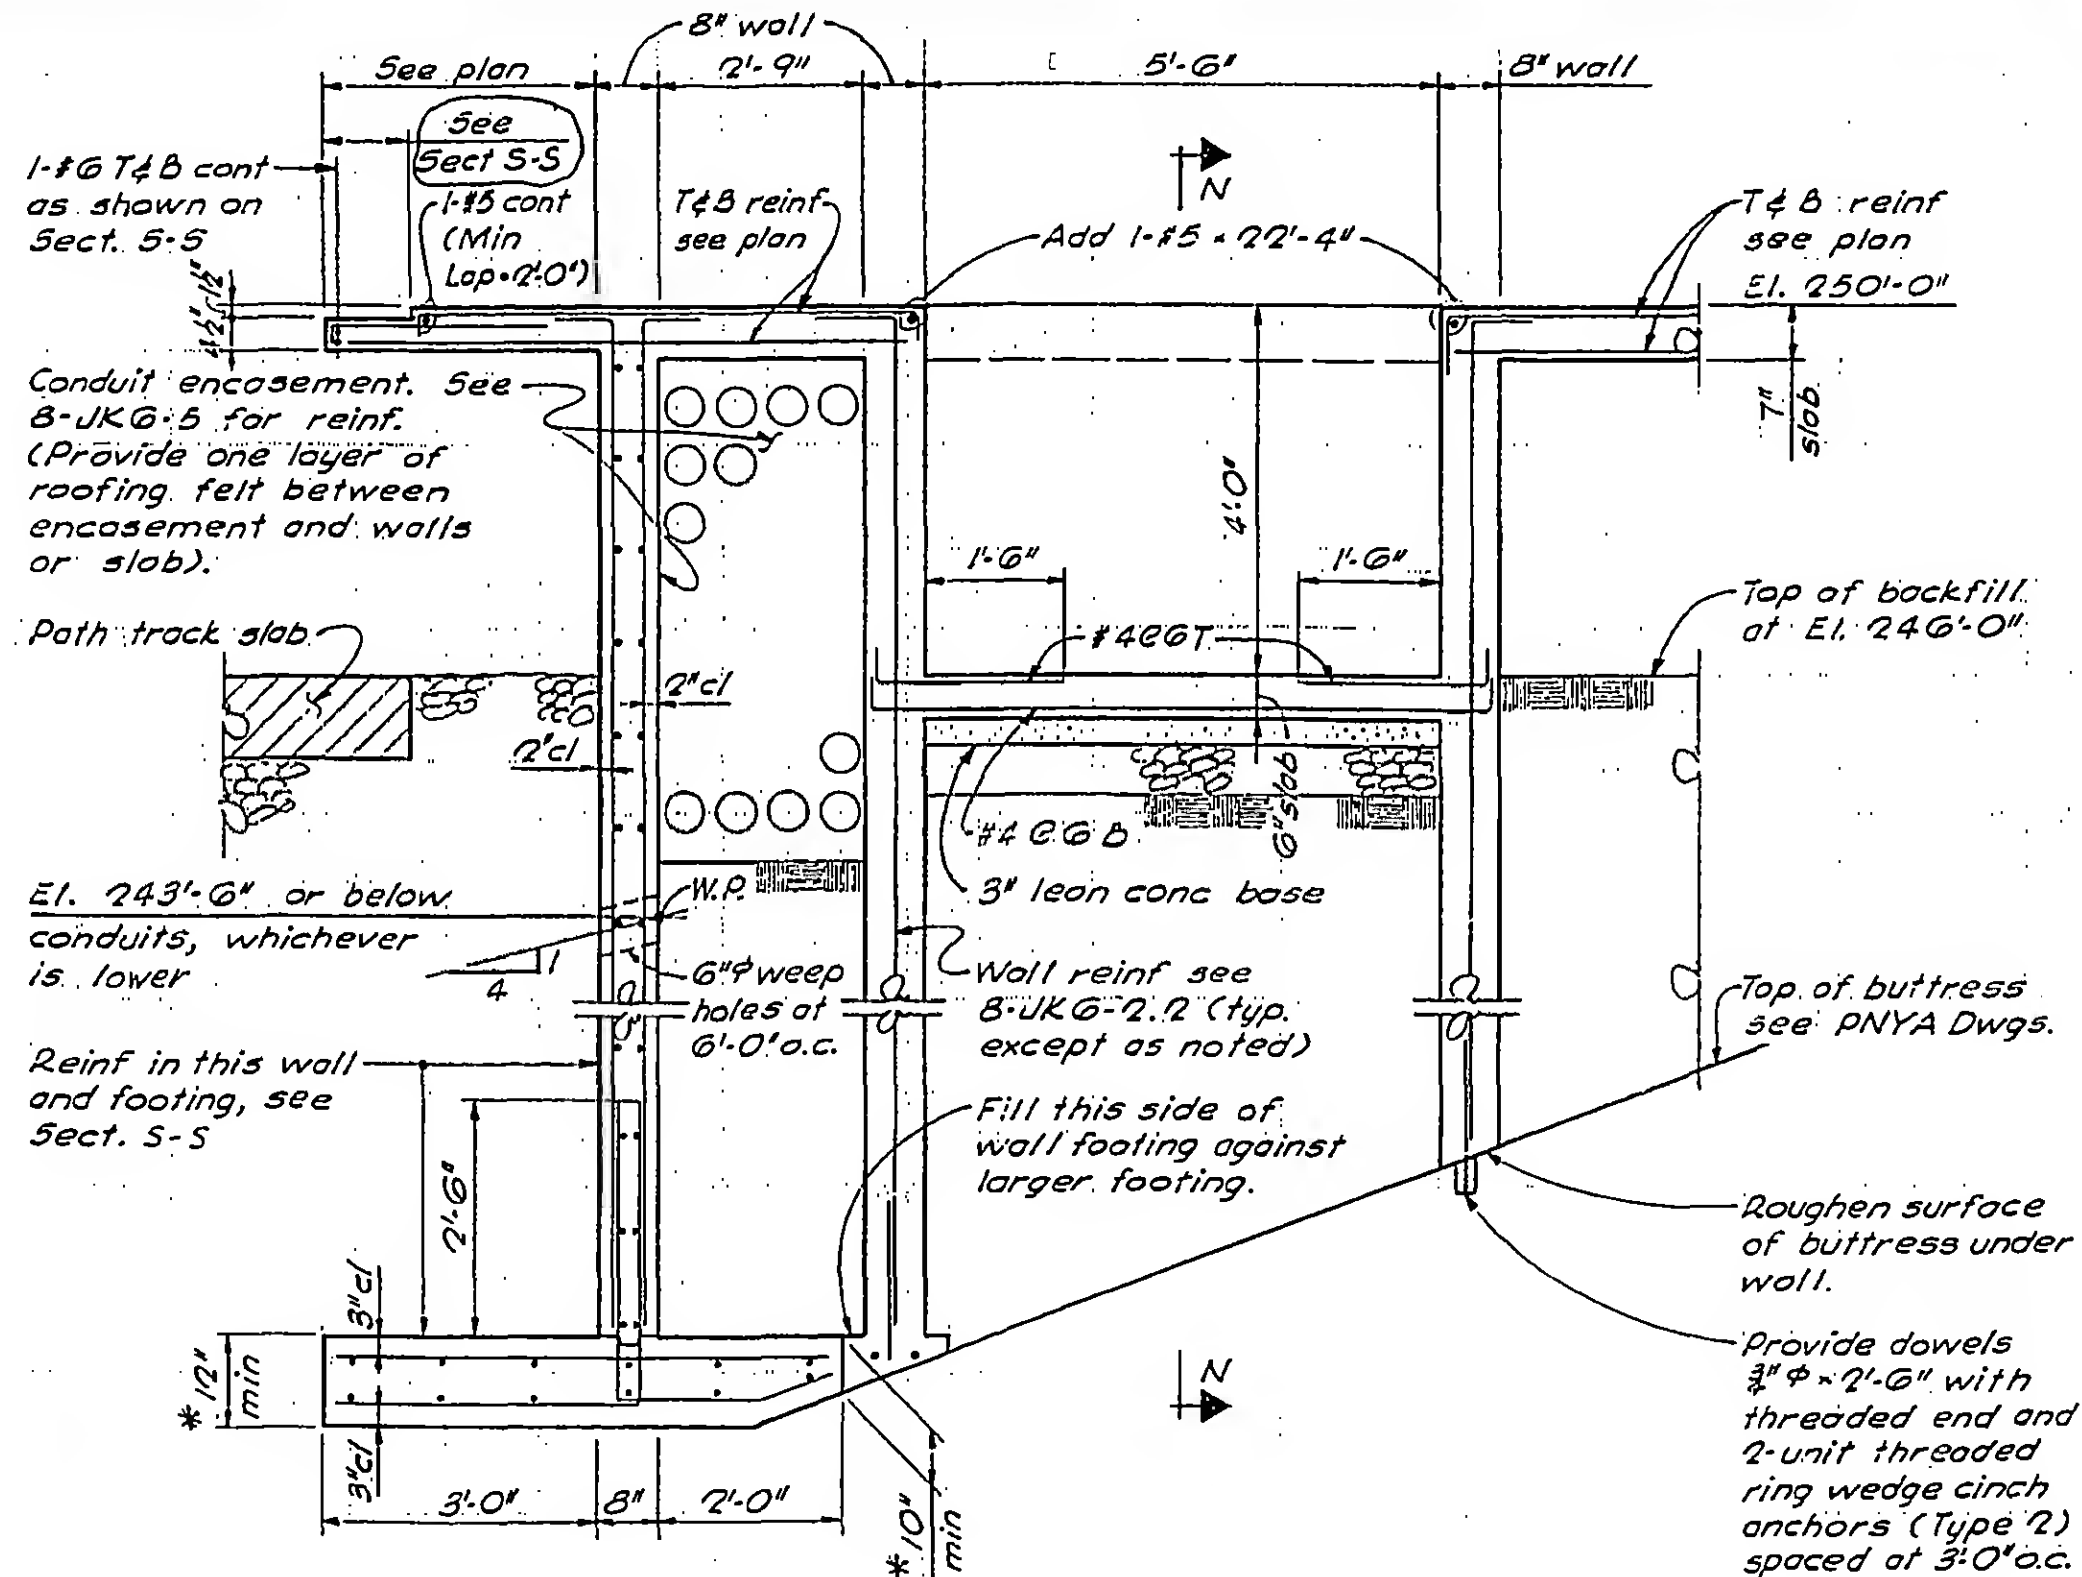 8" wall
See plan
2'-9"
5'-6"
8" wall
See
Sect S-S
1-#6 T&B cont
as shown on
Sect. S-S
1-#5 cont
(Min
Lap=2'-0")
T&B reinf
see plan
N
Add 1-#5 × 22'-4"
T & B reinf
see plan
El. 250'-0"
1½"
4½"
7"
slab
Conduit encasement. See
8-JKG-5 for reinf.
(Provide one layer of
roofing felt between
encasement and walls
or slab).
4'-0"
1'-6"
1'-6"
Top of backfill
at El. 246'-0"
Path track slab
#4@6T
2"cl
2"cl
6" slab
#4@6 B
3" lean conc base
El. 243'-6" or below
conduits, whichever
is lower
W.P.
1
4
6"φ weep
holes at
6'-0" o.c.
Wall reinf see
8-JKG-2.2 (typ.
except as noted)
Top of buttress
see PNYA Dwgs.
Reinf in this wall
and footing, see
Sect. S-S
2'-6"
Fill this side of
wall footing against
larger footing.
Roughen surface
of buttress under
wall.
3"cl
*12"
min
3"cl
N
Provide dowels
¾"φ × 2'-6" with
threaded end and
2-unit threaded
ring wedge cinch
anchors (Type 2)
spaced at 3'-0" o.c.
3'-0"
8"
2'-0"
*10"
min